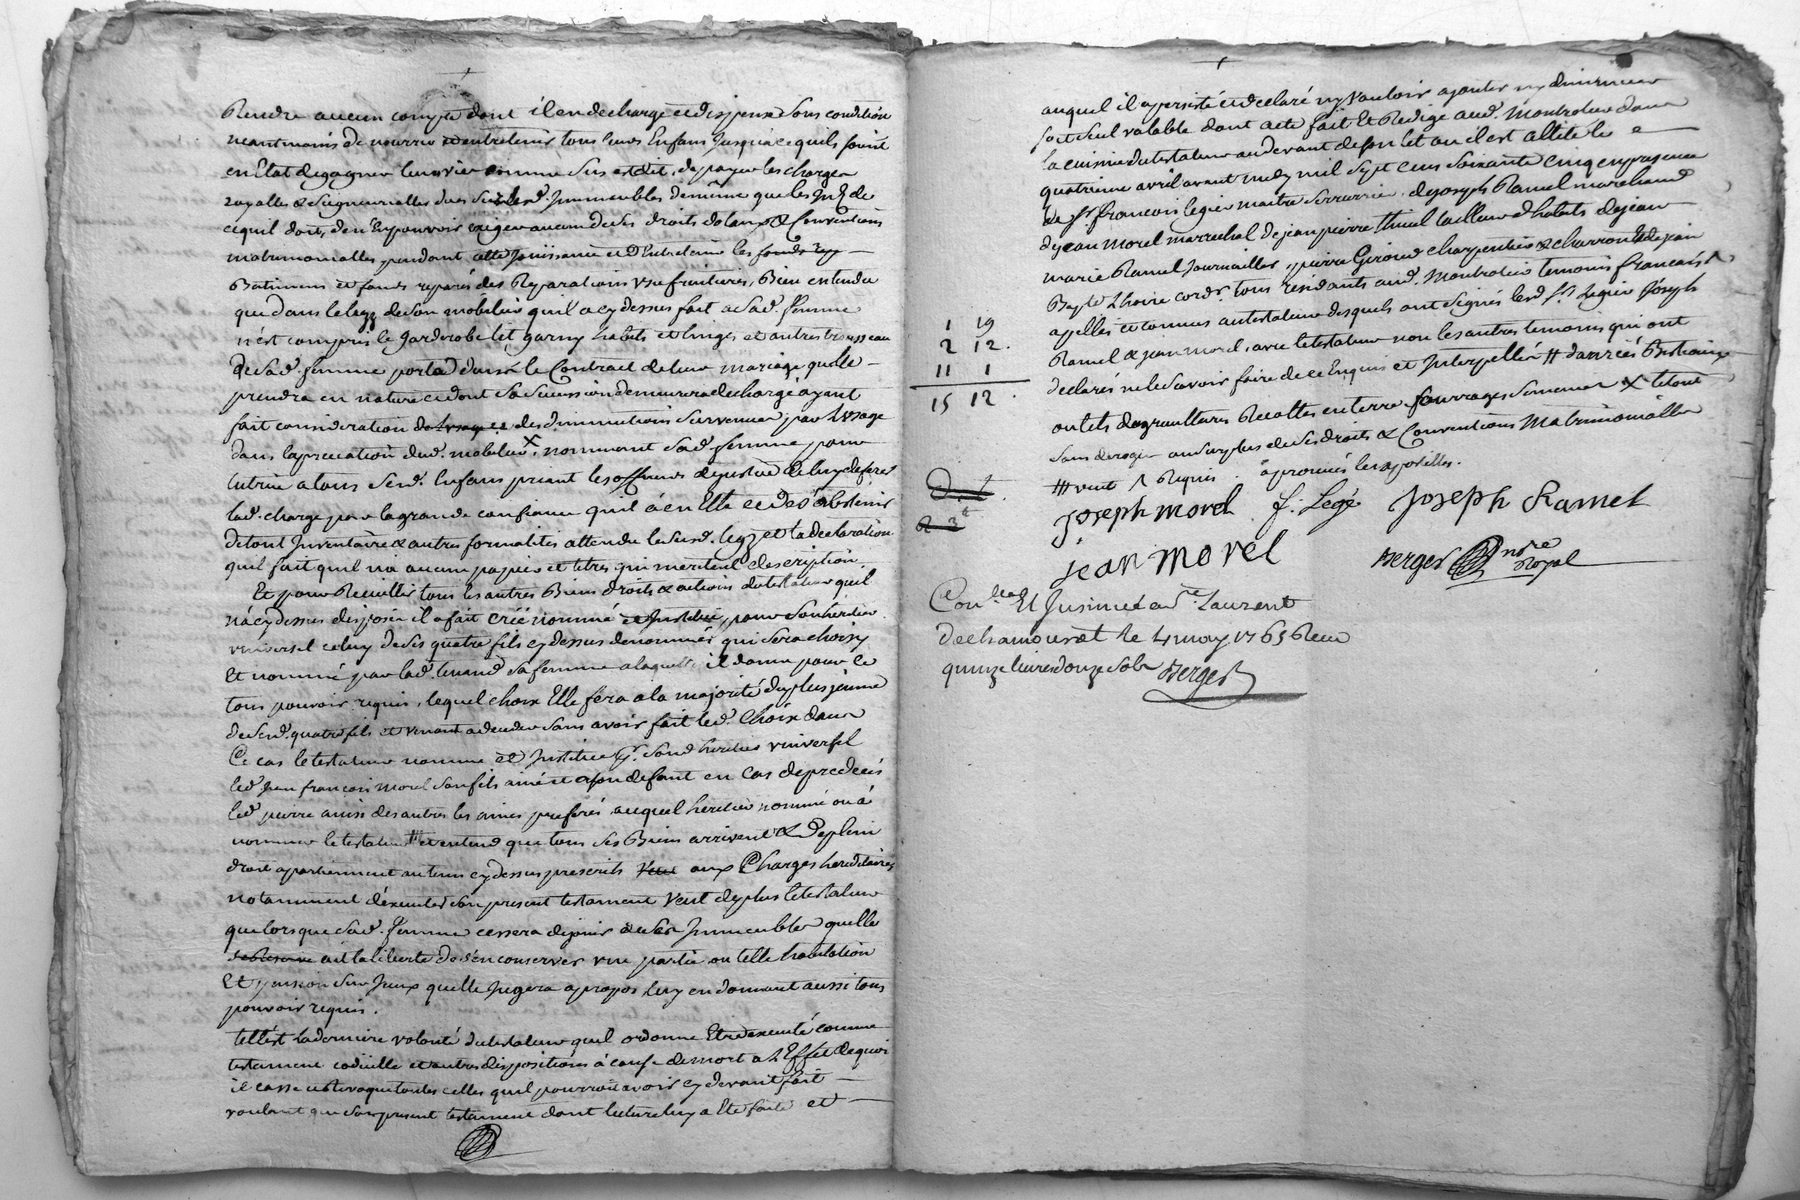 Rendre aucun compte dont il en decharge et dispense sous condition
neantmoins de nourrir et entretenir tous leurs Enfans Jusqu'a ce quils soint
en Etat de gagner leur vie comme sus est dit, de payer les charges
royalles & Seigneurialles dues sur lesd. Immeubles de même que les de
ce quil doit, d'en En pouvoir exiger aucun de ses droits dotaux & Conventions
matrimonialles pendant cette Jouissance et d'Entretenir les fonds
Batimens et fonds reparés des Reparations usufruitieres, Bien entendu
que dans le legs de son mobilier qu'il a cy dessus fait a sad. femme
n'est compris le garderobe lit garny habits et linges et autres trousseau
de sad. femme porté dans le Contract de leur mariage quelle
prendra en nature et dont sa succession demeurera dechargé ayant
fait consideration des diminutions survenues par l'usage
dans la dud. mobilier, nommant sad. femme pour
tutrice a tous sesd. Enfans priant les officiers de justice de luy deferer
lad. charge par la grande confiance quil a en Elle et de s'abstenir
de tout Inventaire & autres formalités attendu le susd. legs et la declaration
quil fait quil n'a aucun papiers et titres qui meritent description.
Et pour Recuillir tous les autres Biens droits & actions du testateur quil
n'a cy dessus disposé il a fait créé nommé et Institué pour son heritier
universel celuy de ses quatre fils cy dessus denommés qui sera choisy
Et nommé par lad. sa femme a laquelle il donne pour ce
tous pouvoir requis, lequel choix Elle fera a la majorité du plus jeune
de sesd. quatre fils et venant a deceder sans avoir fait led. choix dans
Ce cas le testateur nomme et Institue p.r sond heritier universel
led. Jean francois morel son fils ainé et a son defaut en cas de predeces
led. pierre ainsi des autres les ainés preferés auquel heritier nommé ou a
nommer le testateur et entend que tous ses Biens arrivent & de plein
droit apartiennent au tems cy dessus prescrits aux Charges hereditaires
notamment d'executer son present testament Veut de plus le testateur
que lorsque sad. femme cessera de jouir de ses Immeubles quelle
ait la liberté de s'en conserver une partie ou telle habitation
Et pension sur Iceux quelle Jugera a propos luy en donnant aussi tous
pouvoir requis.
tell'est la derniere volonté du testateur quil ordonne Etre executé comme
testament codicille et autres dispositions a cause de mort a l'Effet de quoi
il casse et revoque toutes celles quil pourroit avoir cy devant fait
voulant que son present testament dont lecture luy a eté faite et
auquel il a persisté et declaré n'y vouloir ajouter ny diminuer
soit seul valable dont acte fait Et Redigé aud. Montrotier dans
la cuisine du testateur au devant de son lit ou il est allité le
quatrieme avril avant midy mil sept cens soixante cinq en presence
de S.r francois legier maitre serrurier, de joseph Ramel marchand
de jean morel marechal de jean pierre thuel tailleur d'habits de jean
marie Ramel Journallier, pierre Giroud charpentier & charron & de jean
Bapte. cord.r tous residants aud. Montrotier temoins francais
apellés et connus au testateur desquels ont signés lesd. s.rs legier Joseph
Ramel & jean morel, avec le testateur non les autres temoins qui ont
declarés ne le savoir faire de ce Enquis et Interpellés # danrées Bestiaux
outils d'agriculture Recoltes en terre fourrages semences X le tout
sans deroger au surplus de ses droits & Conventions Matrimonialles
### veut requis. aprouvés les apostilles.
1 19
2 12.
11 1
15 12.
Joseph morel f. Legé Joseph Ramel
jean morel Berger n.re Royal
Con.lé Et Insinué a S.t Laurent
dechamousset le 4 may 1765 Receu
quinze livres douze sols Berger